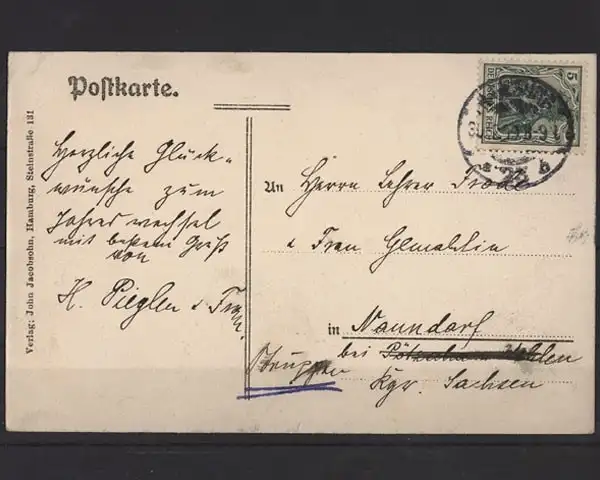 Postkarte.
Verlag: John Jacobsohn, Hamburg, Steinstraße 131
Herzliche Glück-
wünsche zum
Jahreswechsel
mit bestem Gruß
von
H. Piegler u Frau.
5
DEUTSCHES REICH
An Herrn Lehrer
u Frau Gemahlin
in Naundorf
bei
Struppen
Kgr. Sachsen